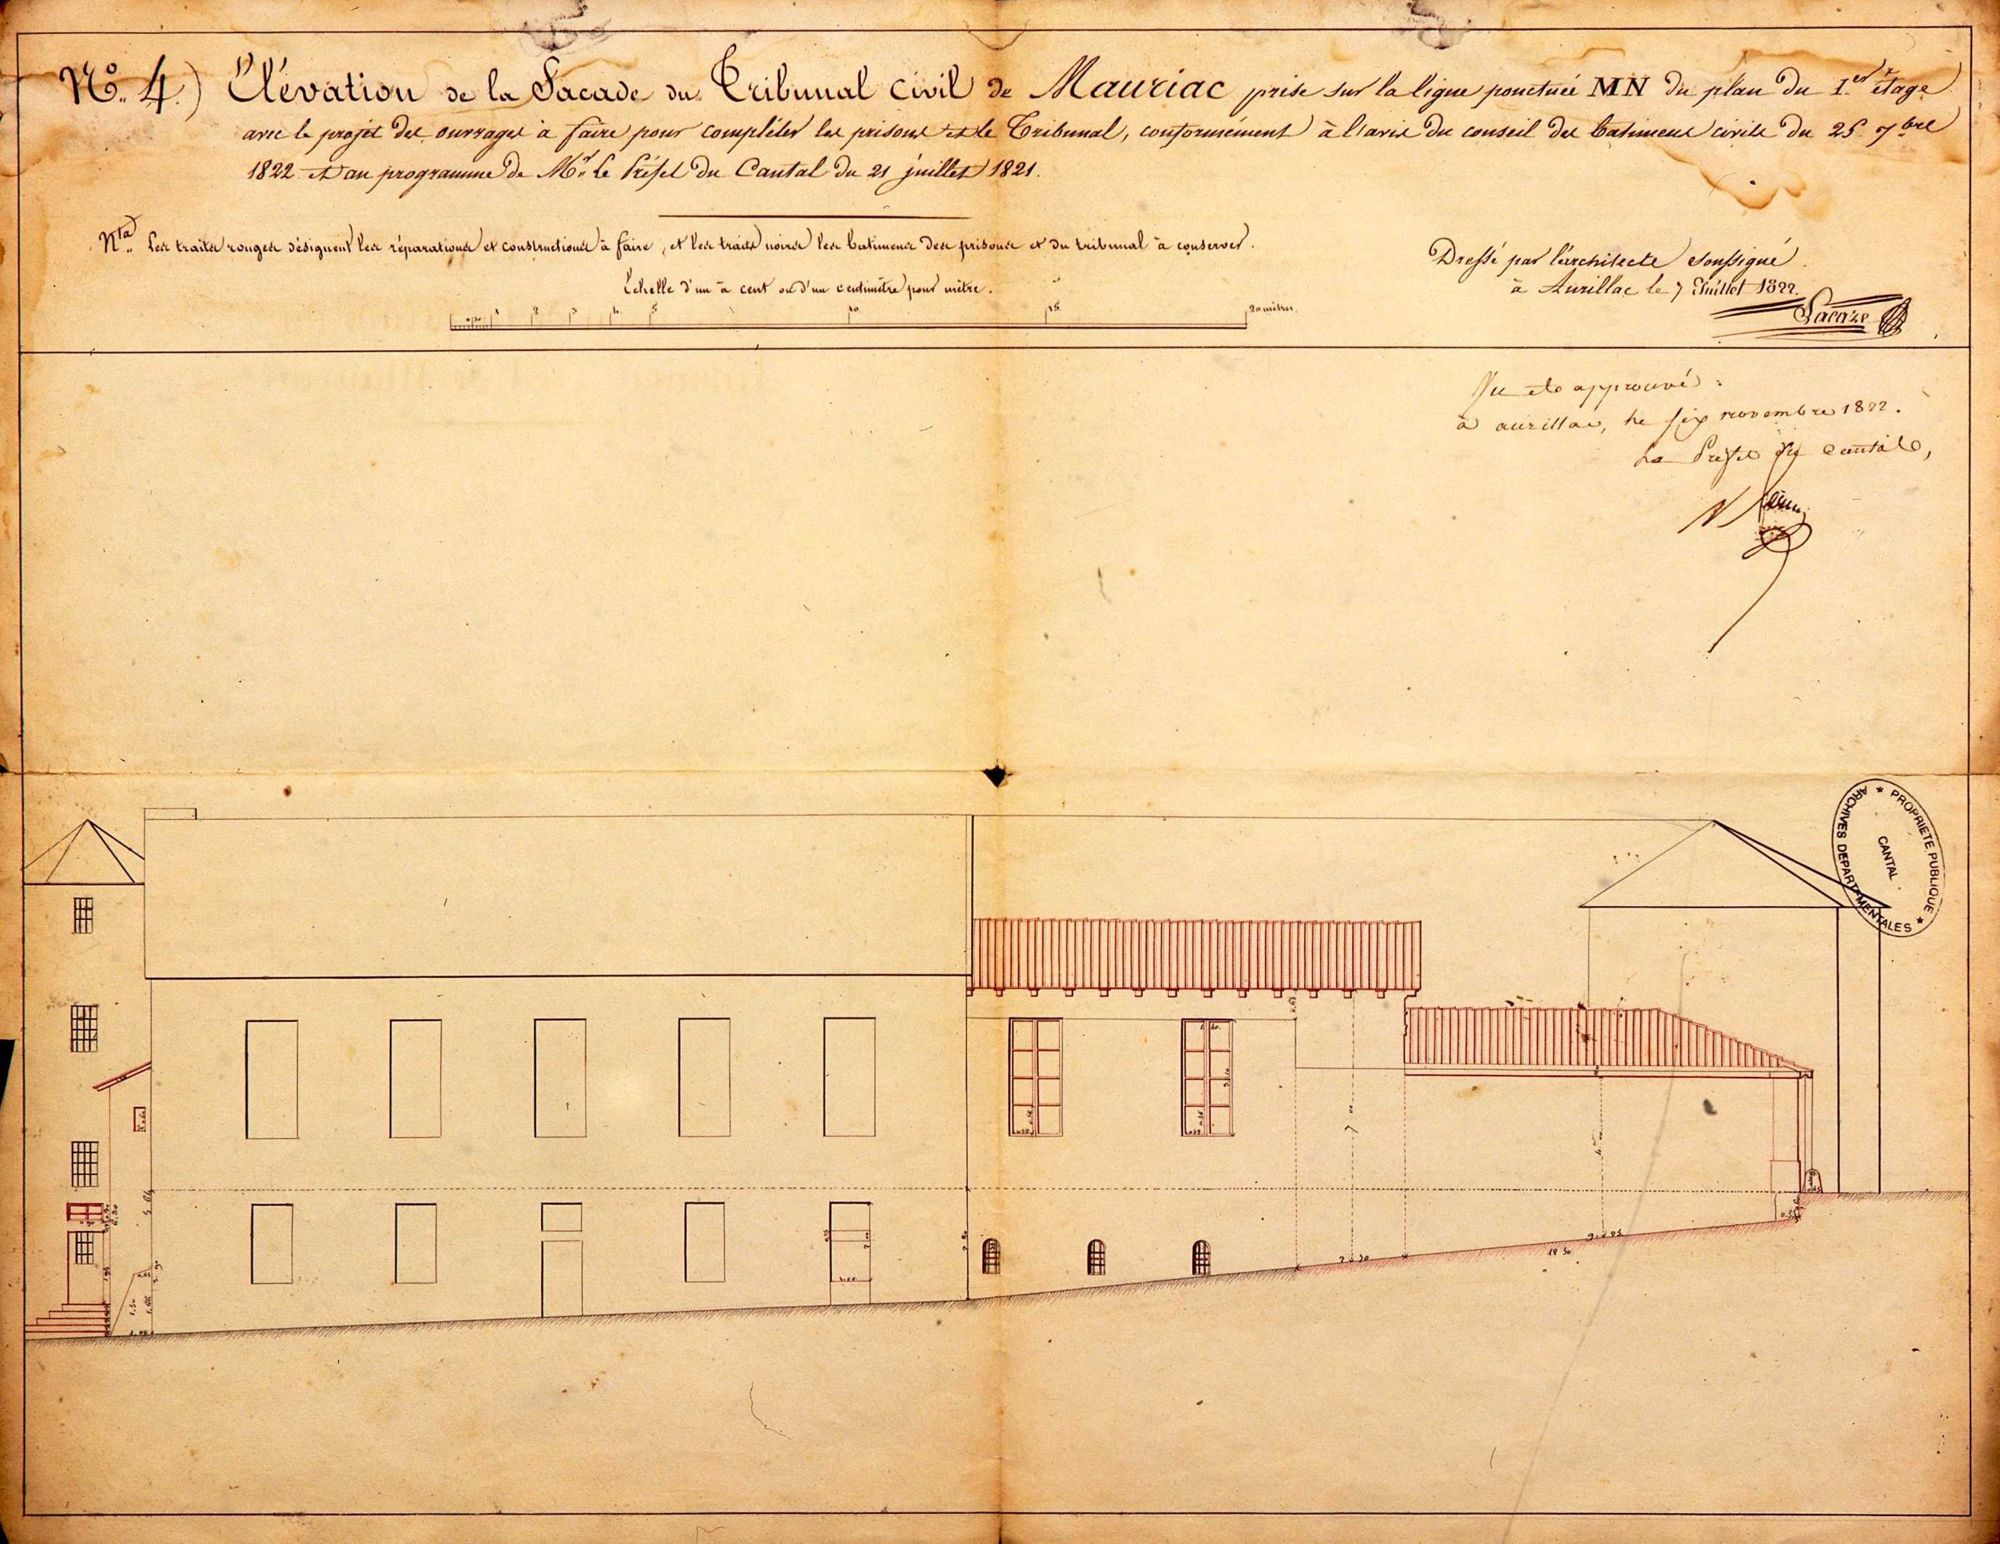 N.º 4.) Élévation de la Facade du Tribunal Civil de Mauriac prise sur la ligne ponctuée MN du plan du 1er étage
avec le projet des ouvrages à faire pour compléter les prisons et le Tribunal, conformément à l'avis du conseil des batimens civils du 25. 7bre
1822 et au programme de Mr. le Préfet du Cantal du 21 juillet 1821.
Nta. Les traits rouges désignent les réparations et constructions à faire, et les traits noirs les batimens des prisons et du tribunal à conserver.
Echelle d'un à cent ou d'un centimètre pour mètre.
1 2 3 4 5 10 15 20 mètres.
Dressé par l'architecte soussigné
à Aurillac le 7 Juillet 1822.
Lacaze
Vu et approuvé :
à aurillac, le six novembre 1822.
Le Préfet du Cantal,
PROPRIETE PUBLIQUE
CANTAL
ARCHIVES DEPARTEMENTALES